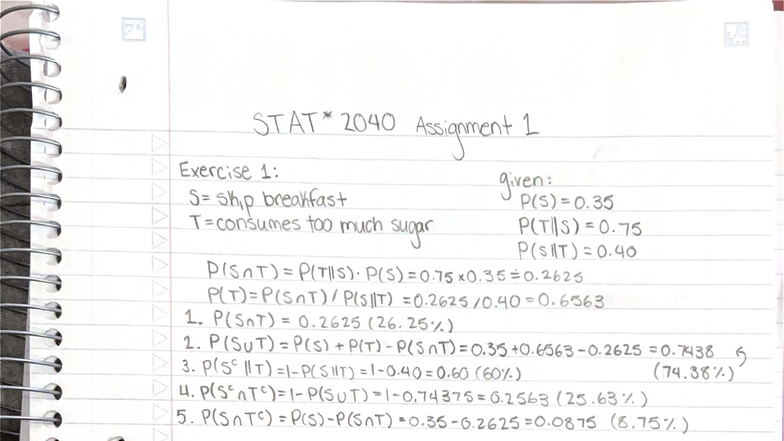 STAT* 2040 Assignment 1
Exercise 1:
S= skip breakfast
T=consumes too much sugar
given:
P(S)=0.35
P(T||S)=0.75
P(S||T)=0.40
P(S∩T)=P(T||S)·P(S)=0.75×0.35=0.2625
P(T)=P(S∩T)/P(S||T)=0.2625/0.40=0.6563
1. P(S∩T)=0.2625(26.25%)
2. P(S∪T)=P(S)+P(T)-P(S∩T)=0.35+0.6563-0.2625=0.7438
(74.38%)
3. P(Sᶜ||T)=1-P(S||T)=1-0.40=0.60(60%)
4. P(Sᶜ∩Tᶜ)=1-P(S∪T)=1-0.74375=0.2563(25.63%)
5. P(S∩Tᶜ)=P(S)-P(S∩T)=0.35-0.2625=0.0875(8.75%)